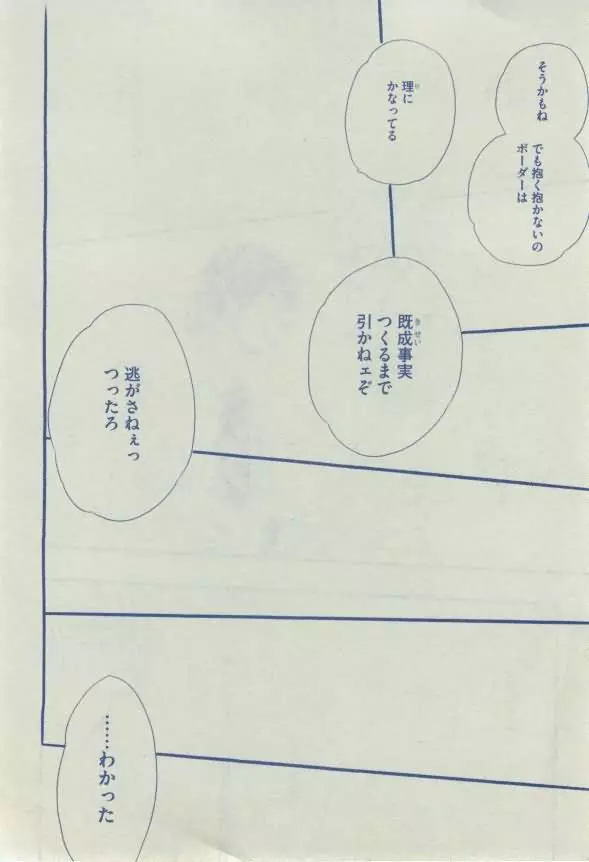 そうかもね
でも抱く抱かないの
ボーダーは
理に
かなってる
既成事実
つくるまで
引かねェぞ
逃がさねぇっ
つったろ
……わかった